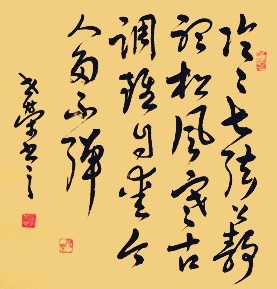 泠々七弦上靜
聽松風寒古
調雖自愛今
人多不彈
榮書之